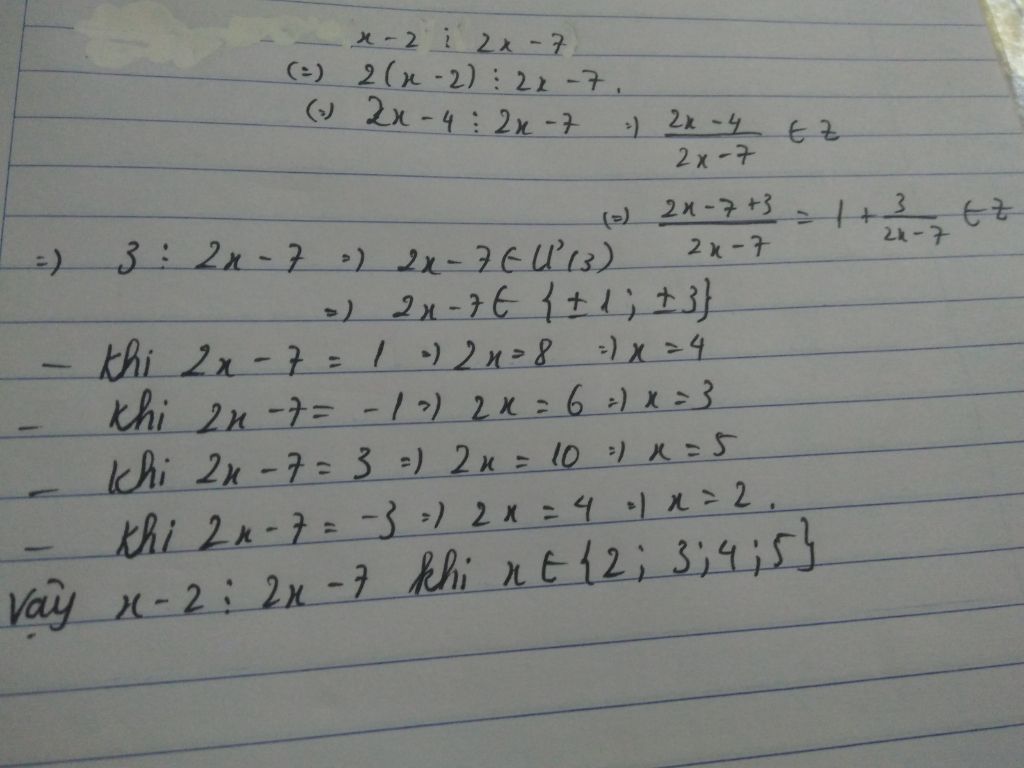 x - 2 ⋮ 2x - 7
(=) 2(x - 2) ⋮ 2x - 7.
(=) 2x - 4 ⋮ 2x - 7 =) \frac{2x - 4}{2x - 7} ∈ Z
(=) \frac{2x - 7 + 3}{2x - 7} = 1 + \frac{3}{2x - 7} ∈ Z
=) 3 ⋮ 2x - 7 =) 2x - 7 ∈ Ư(3)
=) 2x - 7 ∈ {±1; ±3}
- Khi 2x - 7 = 1 =) 2x = 8 =) x = 4
- Khi 2x - 7 = -1 =) 2x = 6 =) x = 3
- Khi 2x - 7 = 3 =) 2x = 10 =) x = 5
- Khi 2x - 7 = -3 =) 2x = 4 =) x = 2.
Vậy x - 2 ⋮ 2x - 7 khi x ∈ {2; 3; 4; 5}